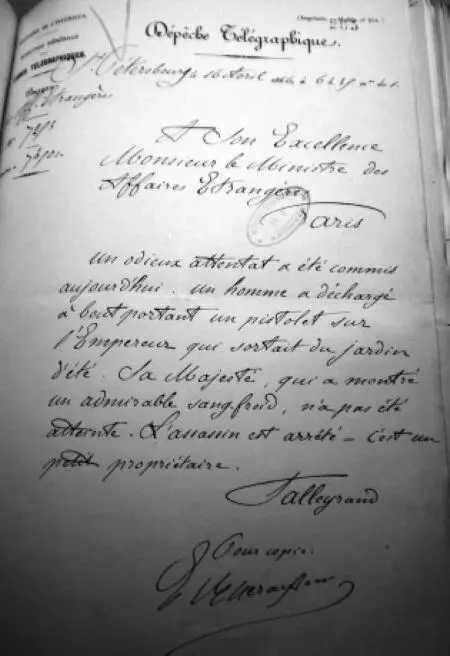 MINISTÈRE DE L'INTÉRIEUR
DIRECTION GÉNÉRALE
LIGNES TÉLÉGRAPHIQUES
Dépêche Télégraphique.
St Pétersbourg 16 Avril
Etrangères
A Son Excellence
Monsieur le Ministre des
Affaires Etrangères
Paris
Un odieux attentat a été commis
aujourd'hui. un homme a déchargé
à bout portant un pistolet sur
l'Empereur qui sortait du jardin
d'été. Sa Majesté, qui a montré
un admirable sangfroid, n'a pas été
atteinte. L'assassin est arrêté = c'est un
petit propriétaire.
Talleyrand
Pour copie: